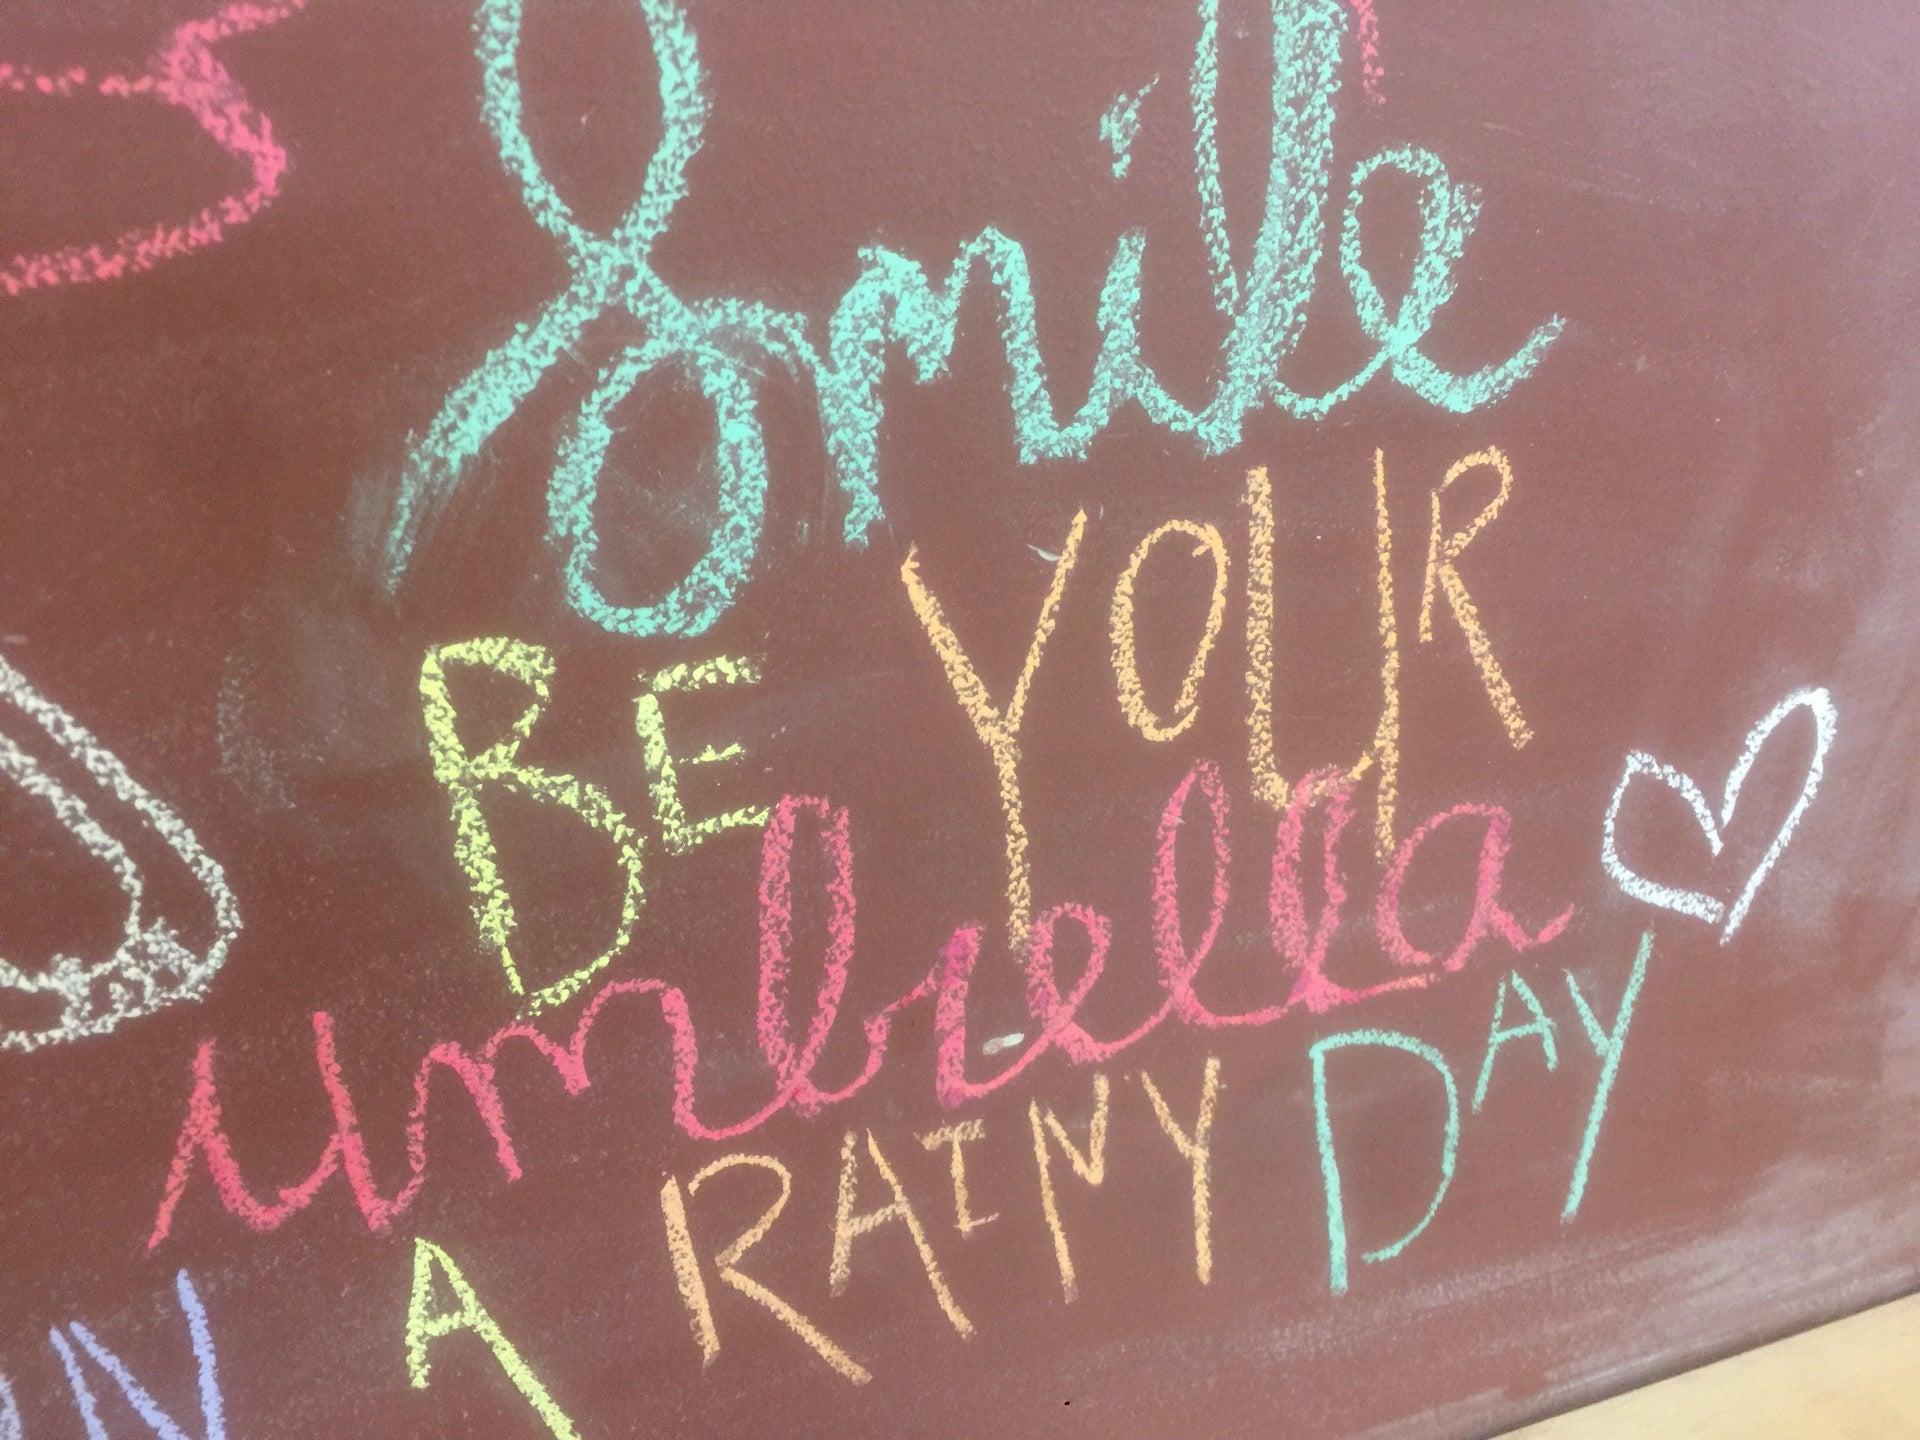 Smile
BE YOUR
umbrella
ON A RAINY DAY